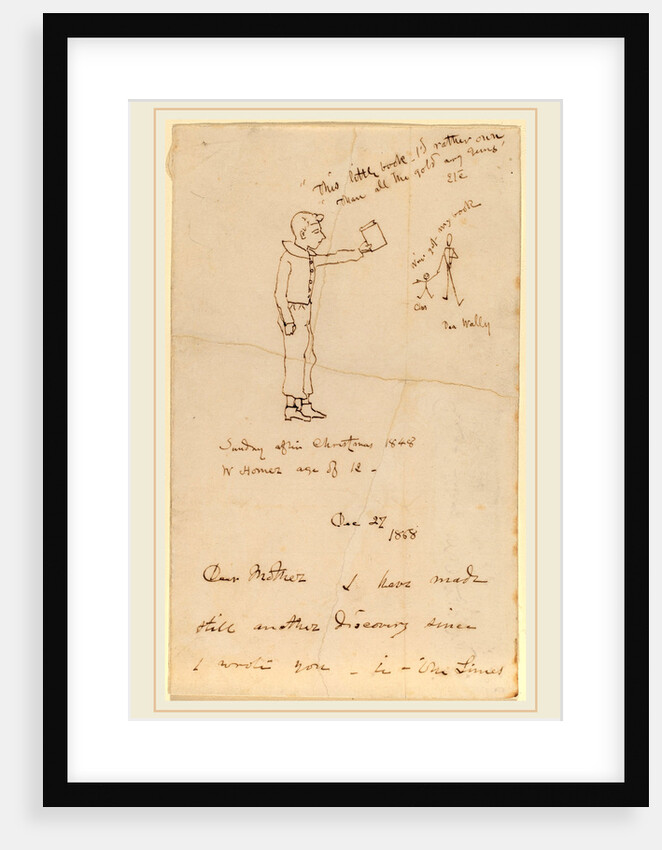 "This little book I'd rather own
"than all the gold any gems"
Etc
I've got my book
Chs
Wally
Sunday after Christmas 1848
W Homer age of 12 -
Dec 27
1868
Dear Mother I have made
still another discovery since
I wrote you - ie - The Times